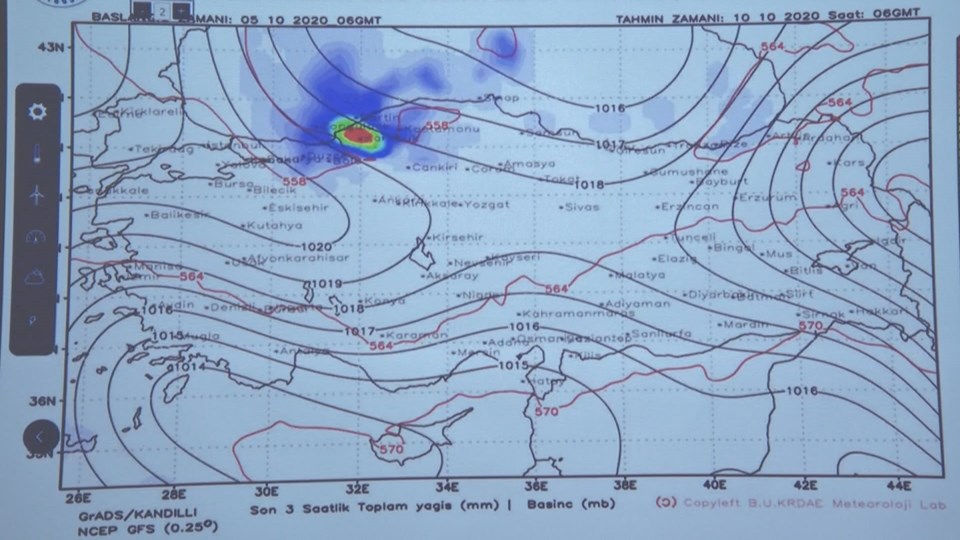 ZAMANI: 05 10 2020 06GMT
2
TAHMIN ZAMANI: 10 10 2020 Saat: 06GMT
43N
564
Sinop
1016
564
Kirklareli
558
1017
Samsun
Ardahan
Tekirdag
Istanbul
Kars
Cankiri
Corum
Amasya
Tokat
1018
Gumushane
Bayburt
558
Bursa
Bilecik
564
Balikesir
Eskisehir
Yozgat
Sivas
Erzincan
Erzurum
Agri
Kutahya
1020
Kirsehir
Tunceli
Bingol
Mus
Afyonkarahisar
Nevsehir
Kayseri
Elazig
Bitlis
Van
Manisa
564
Aksaray
Malatya
1019
Nigde
564
Adiyaman
1016
1018
Konya
Kahramanmaras
Mardin
Sirnak
570
1015
Mugla
1017
Karaman
1016
Sanliurfa
564
Adana
1014
Antalya
Mersin
1015
Kilis
36N
1016
570
570
26E
28E
30E
32E
34E
36E
38E
40E
42E
44E
GrADS/KANDILLI
NCEP GFS (0.25º)
Son 3 Saatlik Toplam yagis (mm) | Basinc (mb)
(ɔ) Copyleft B.U.KRDAE Meteoroloji Lab